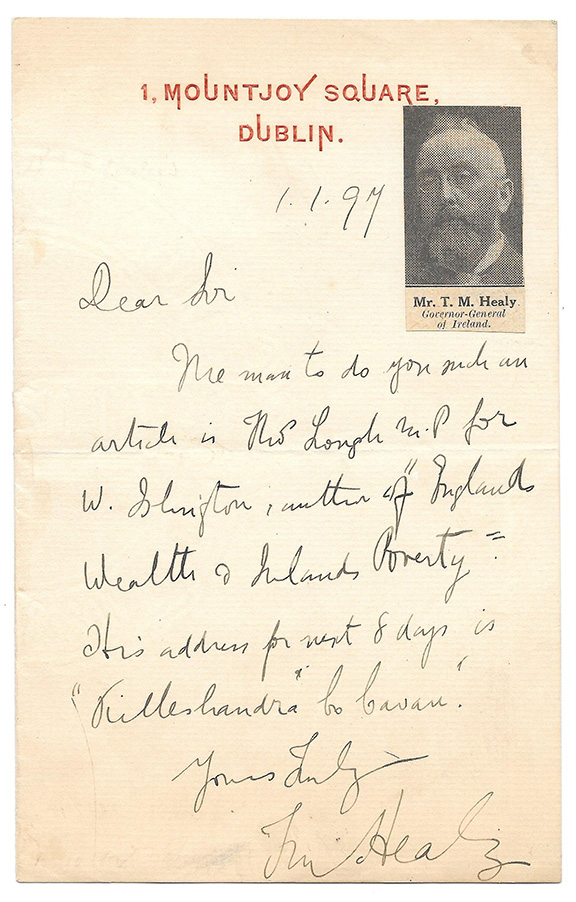 1, MOUNTJOY SQUARE,
DUBLIN.
1.1.97
Mr. T. M. Healy.
Governor-General
of Ireland.
Dear Sir
The man to do you such an
article is Thos Lough M.P for
W. Islington, author of "Englands
Wealth & Irelands Poverty"
His address for next 8 days is
"Killeshandra" Co Cavan."
Yours Truly
Tim Healy